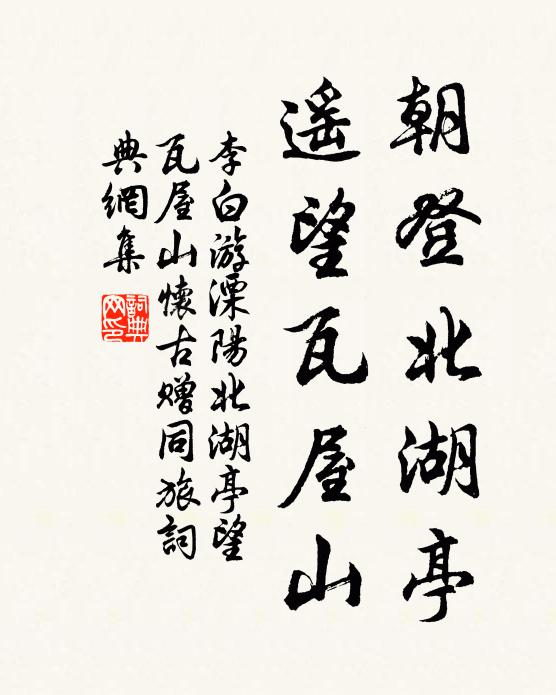 朝登北湖亭
遥望瓦屋山
李白游溧陽北湖亭望
瓦屋山懷古贈同旅詞
典網集
詞典
网印